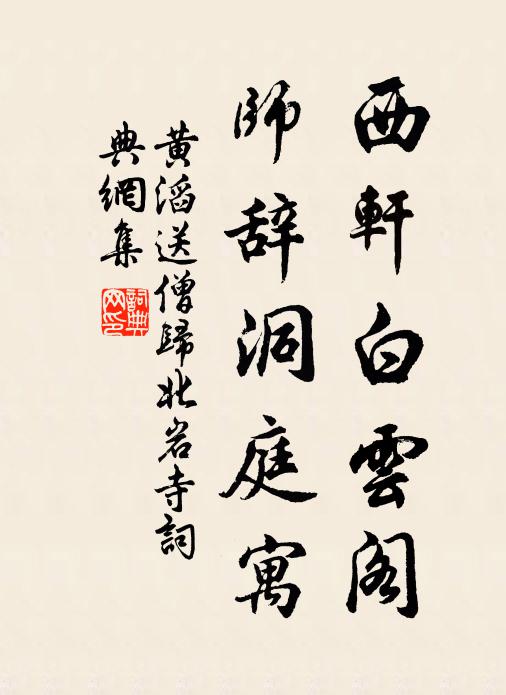 西軒白雲阁
師辞洞庭寓
黄滔送僧歸北岩寺詞
典網集
詞典
网印